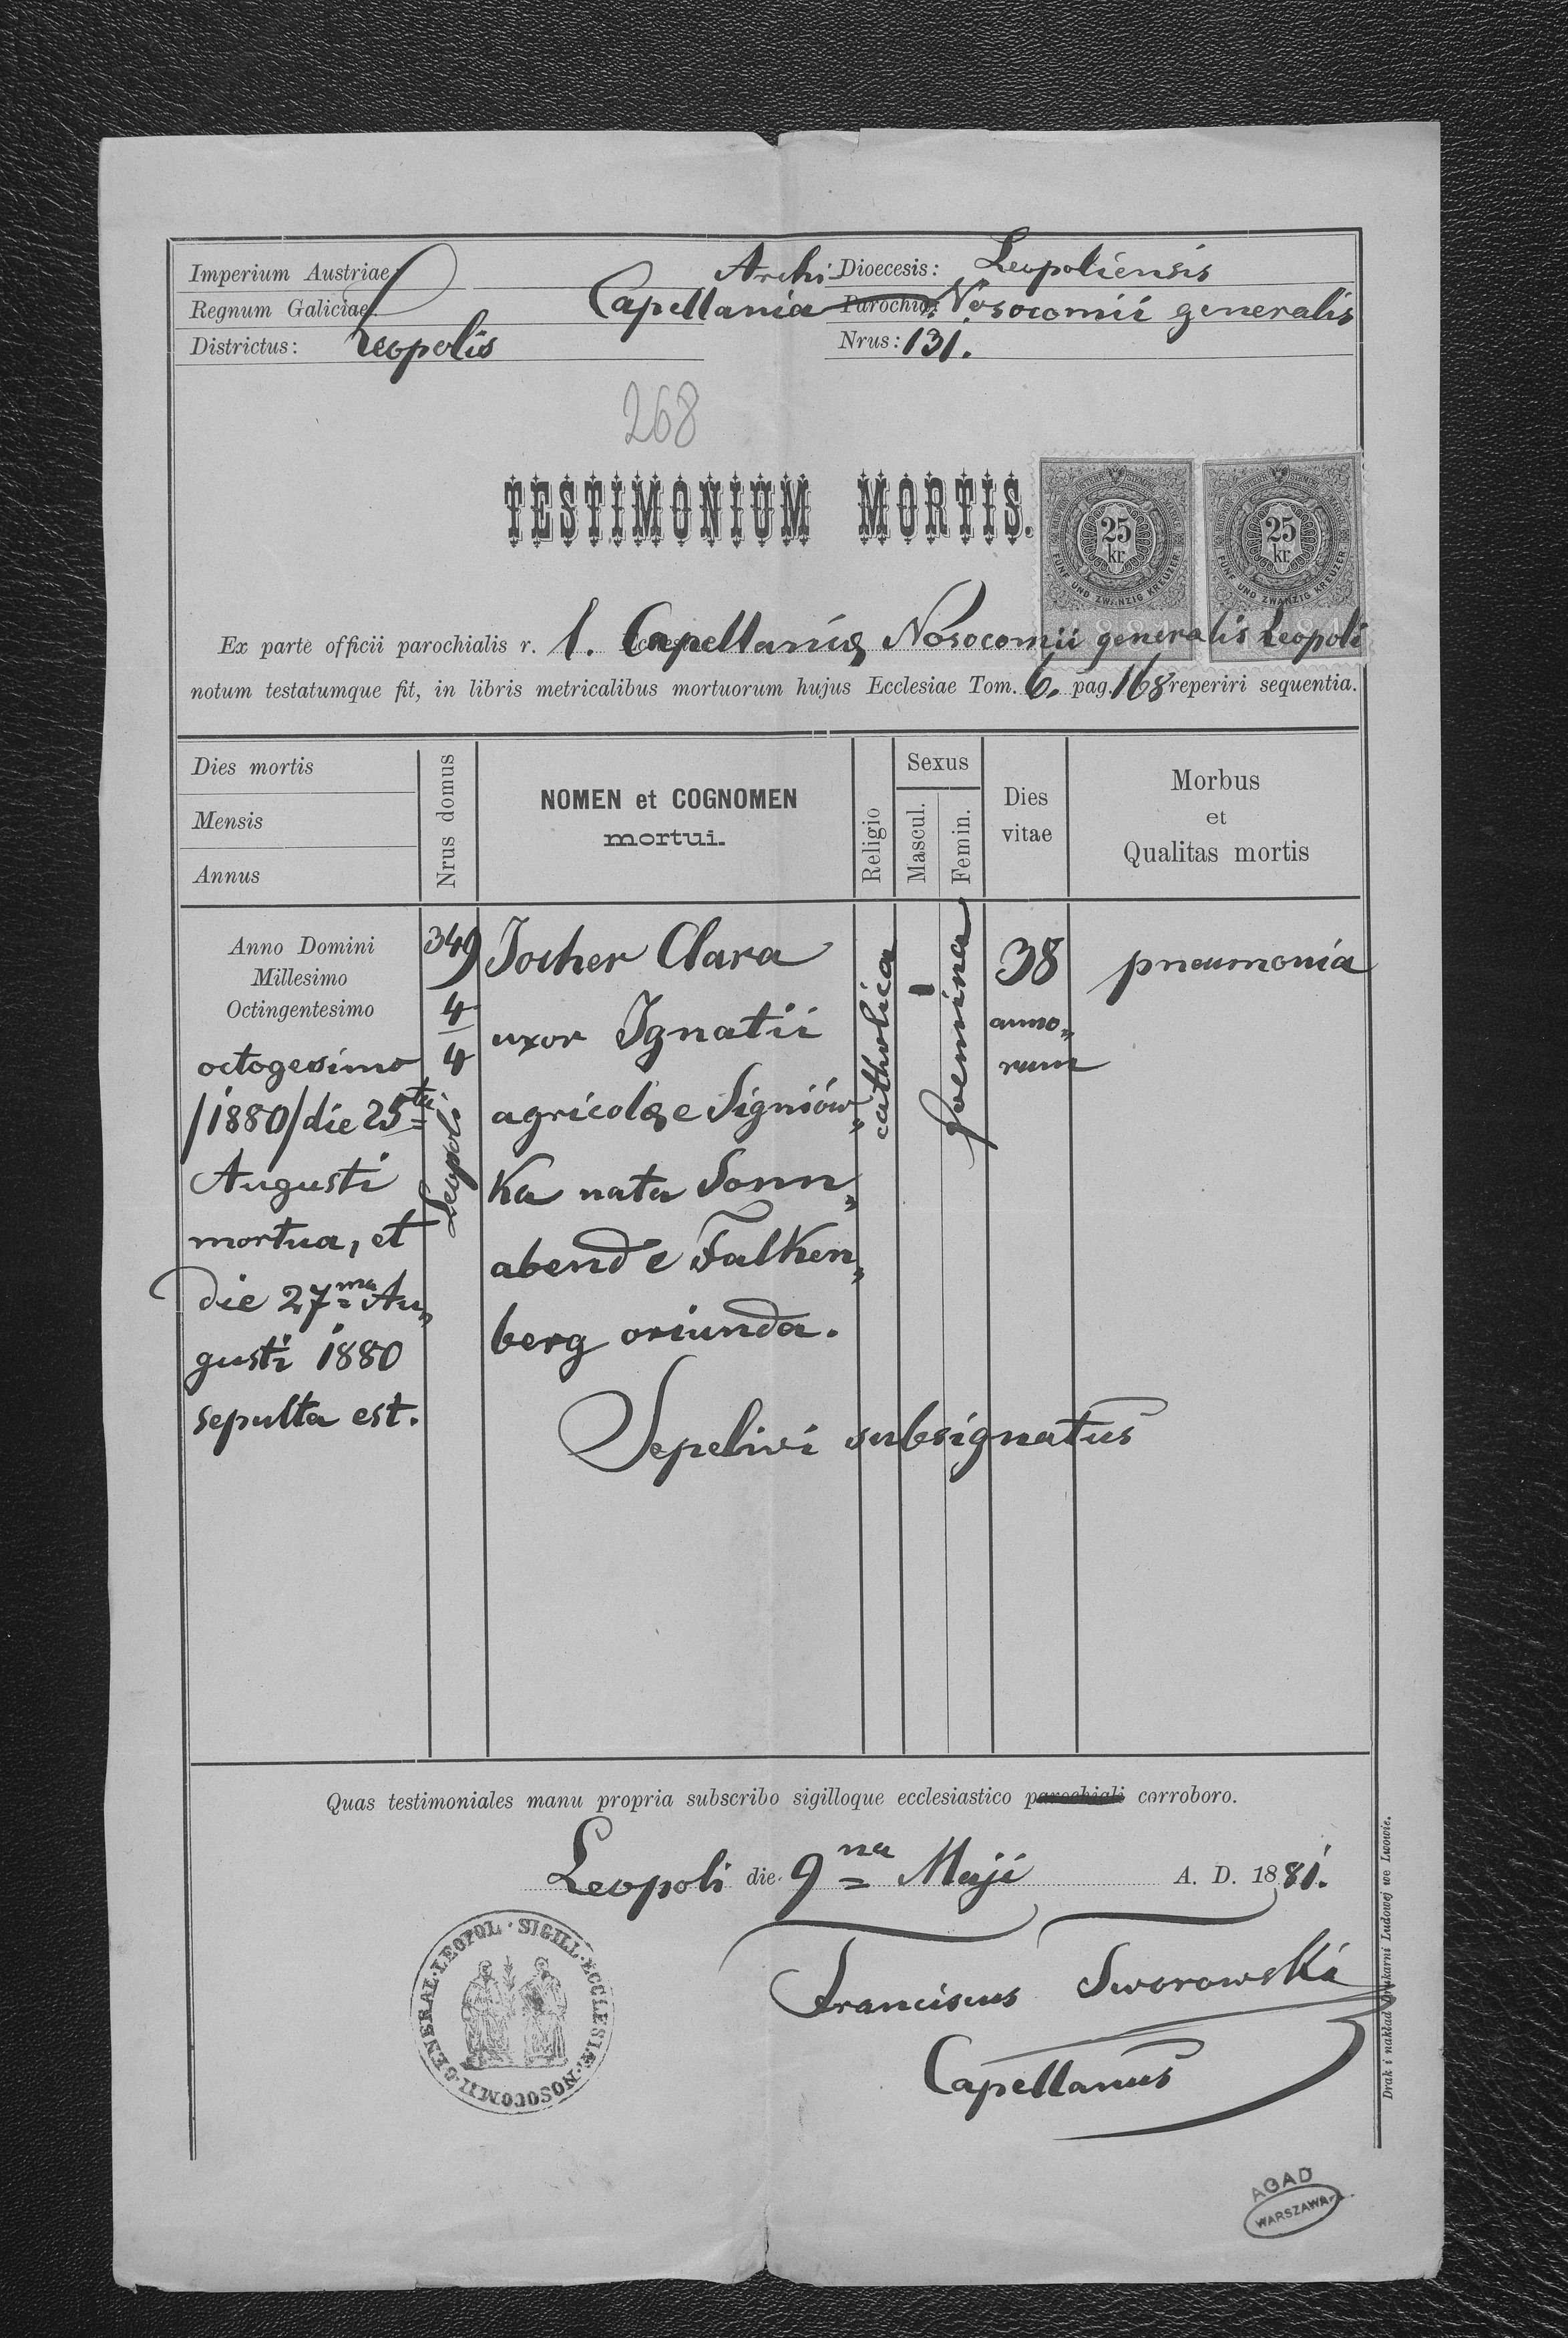 Imperium Austriae.
Archi Dioecesis: Leopoliensis
Regnum Galiciae.
Capellania Parochia: Nosocomii generalis
Districtus: Leopolis
Nrus: 131.
268
TESTIMONIUM MORTIS.
25 kr
FÜNF UND ZWANZIG KREUZER
25 kr
FÜNF UND ZWANZIG KREUZER
Ex parte officii parochialis r. l. Capellaniæ Nosocomii generalis Leopoli
notum testatumque fit, in libris metricalibus mortuorum hujus Ecclesiae Tom. 6. pag. 168 reperiri sequentia.
Dies mortis
Mensis
Annus
Nrus domus
NOMEN et COGNOMEN
mortui.
Religio
Sexus
Mascul.
Femin.
Dies
vitae
Morbus
et
Qualitas mortis
Anno Domini
Millesimo
Octingentesimo
octogesimo
/1880/ die 25ta
Augusti
mortua, et
die 27ma Au„
gusti 1880
sepulta est.
349
4
4
Leopoli
Jocher Clara
uxor Ignatii
agricolæ e Signiów„
ka nata Sonn„
abend e Falken„
berg oriunda.
catholica
foemina
38
anno„
rum
pneumonia
Sepelivi subsignatus
Quas testimoniales manu propria subscribo sigilloque ecclesiastico parochiali corroboro.
Leopoli die 9na Maji A. D. 1881.
Franciscus Sworowski
Capellanus
SIGILL·ECCLESIÆ·NOSOCOMII·GENERAL·LEOPOL·
Druk i nakład Drukarni Ludowej we Lwowie.
AGAD
WARSZAWA